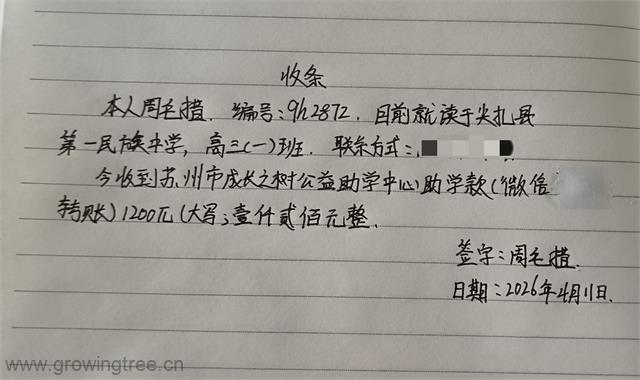 收条
本人周毛措．编号：gh2872．目前就读于尖扎县
第一民族中学，高三(一)班．联系方式：
今收到苏州市成长之树公益助学中心助学款(微信
转账)1200元(大写；壹仟贰佰元整．
签字：周毛措．
日期：2026年4月11日．
www.growingtree.cn